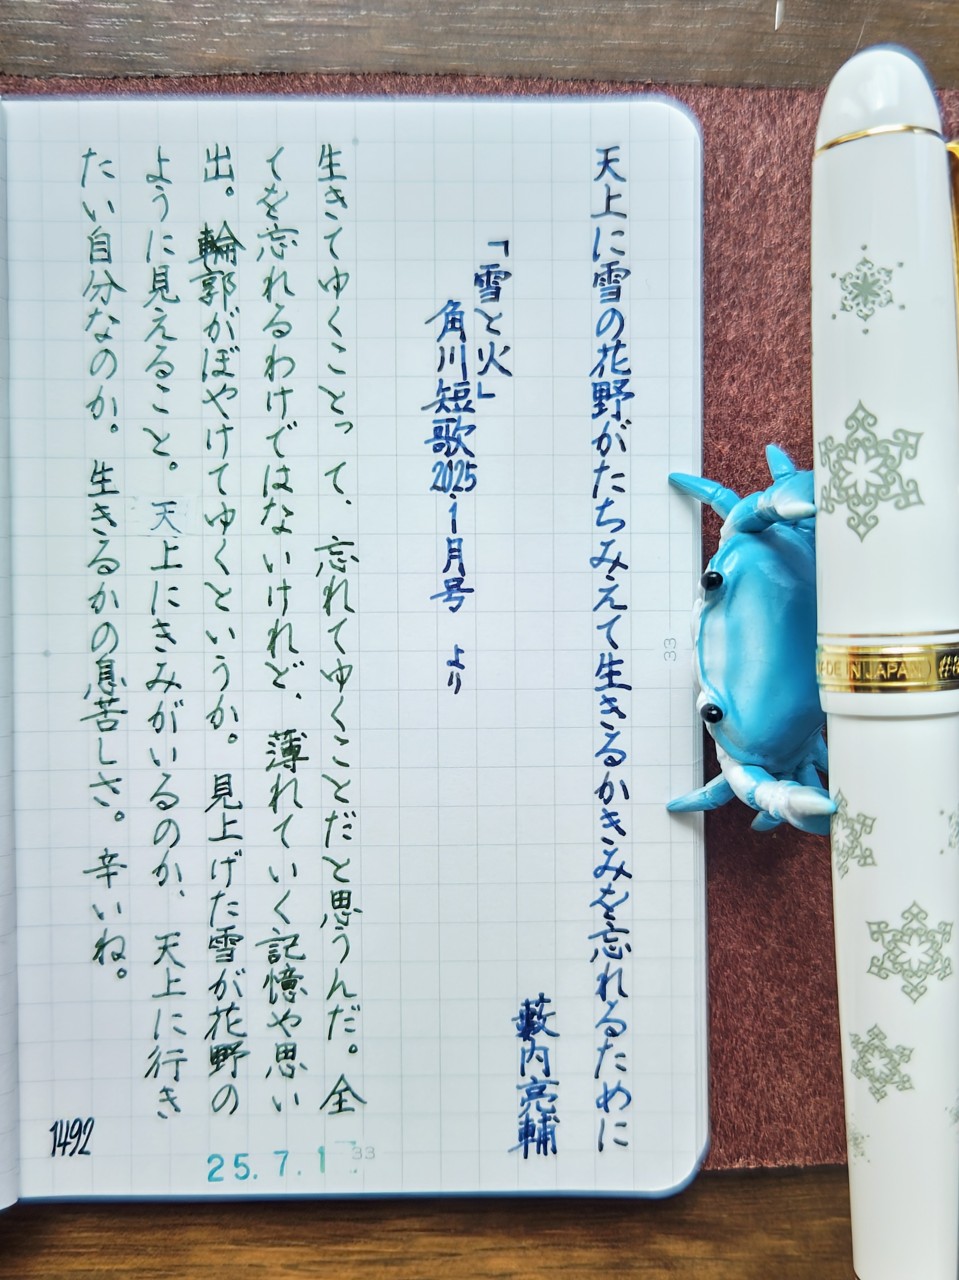 天上に雪の花野がたちみえて生きるかきみを忘れるために
藪内亮輔
「雪と火」
角川短歌2025.1月号 より
生きてゆくことって、忘れてゆくことだと思うんだ。全
てを忘れるわけではないけれど、薄れていく記憶や思い
出。輪郭がぼやけてゆくというか。見上げた雪が花野の
ように見えること。天上にきみがいるのか、天上に行き
たい自分なのか。生きるかの息苦しさ。辛いね。
1492
25.7.1
33
33
DE IN JAPAN